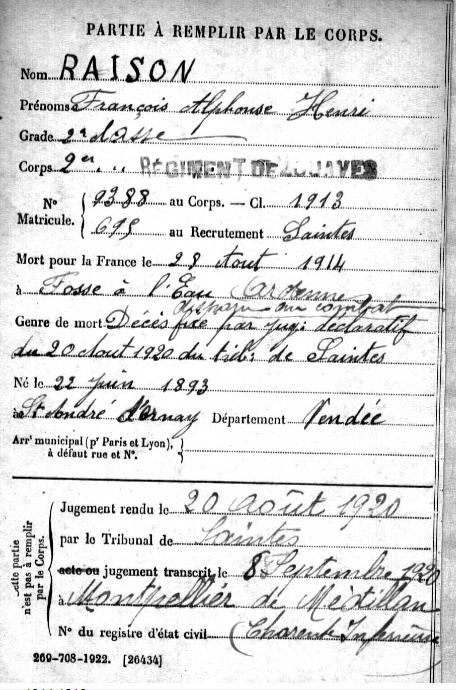 PARTIE À REMPLIR PAR LE CORPS.
Nom RAISON
Prénoms François Alphonse Henri
Grade 2e classe
Corps 2er RÉGIMENT DE ZOUAVES
N° Matricule. { 9388 au Corps. — Cl. 1913
695 au Recrutement Saintes
Mort pour la France le 28 Aout 1914
à Fosse à l'Eau Ardenne
disparu au combat
Genre de mort Décès fixé par jug: déclaratif
du 20 Aout 1920 du trib: de Saintes
Né le 22 juin 1893
à St André Département Vendée
Arrt municipal (pr Paris et Lyon), à défaut rue et N°. }
Cette partie n'est pas à remplir par le Corps.
Jugement rendu le 20 août 1920
par le Tribunal de Saintes
acte ou jugement transcrit le 8 Septembre 1920
à Montpellier de Médillan
N° du registre d'état civil (Charente Inférieure
269-708-1922. [26434]